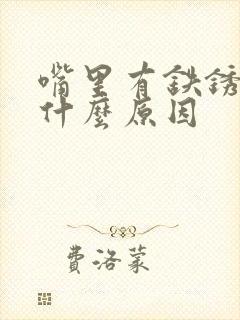 嘴里有铁锈
什麽原因
費洛蒙